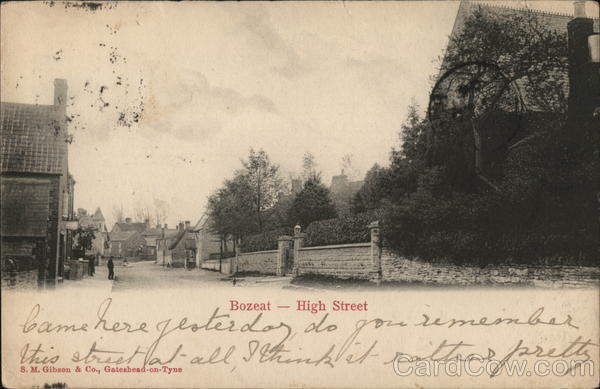 Bozeat — High Street
Came here yesterday, do you remember
this street at-all, I think it rather pretty
S. M. Gibson & Co., Gateshead-on-Tyne
CardCow.com